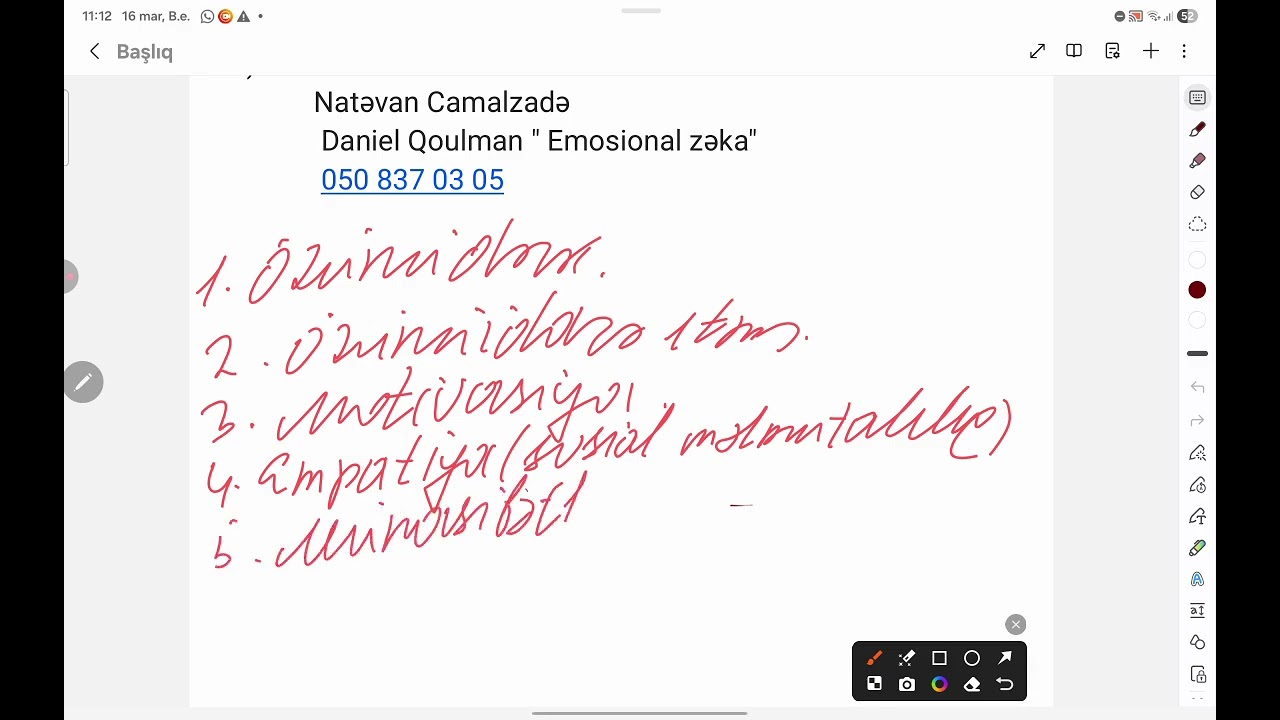 11:12 16 mar, B.e. 52
Başlıq
Natəvan Camalzadə
Daniel Qoulman " Emosional zəka"
050 837 03 05
1. Özünüidərk.
2. Özünüidarə etmə.
3. Motivasiya.
4. Empatiya (sosial məlumatlılıq)
5. Münasibət